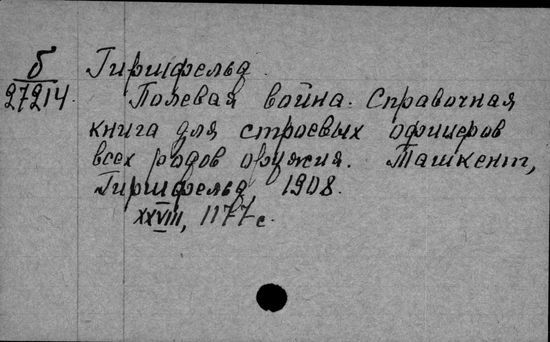 б Гиршфельд.
27214. Полевая война. Справочная
книга для строевых офицеров
всех родов оружия. Ташкент,
Гиршфельд 1908.
XXVIII, 1177 с.